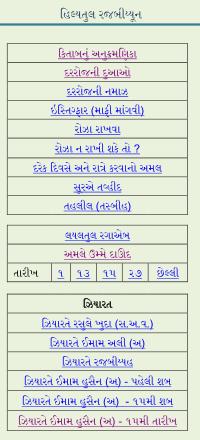 હિલ્યતુલ રજબીય્યૂન
કિતાબનું અનુક્રમણિકા
દરરોજની દુઆઓ
દરરોજની નમાઝ
ઇસ્તિગ્ફાર (માફી માંગવી)
રોઝા રાખવા
રોઝા ન રાખી શકે તો ?
દરેક દિવસે અને રાત્રે કરવાનો અમલ
સુરએ તવ્હીદ
તહલીલ (તસ્બીહ)
લયલતુલ રગાએબ
અમલે ઉમ્મે દાઊદ
તારીખ ૧ ૧૩ ૧૫ ૨૭ છેલ્લી
ઝિયારત
ઝિયારતે રસુલે ખુદા (સ.અ.વ.)
ઝિયારતે ઈમામ અલી (અ)
ઝિયારતે રજબીય્યહ
ઝિયારતે ઈમામ હુસૈન (અ) - પહેલી શબ
ઝિયારતે ઈમામ હુસૈન (અ) - ૧૫મી શબ
ઝિયારતે ઈમામ હુસૈન (અ) - ૧૫મી તારીખ